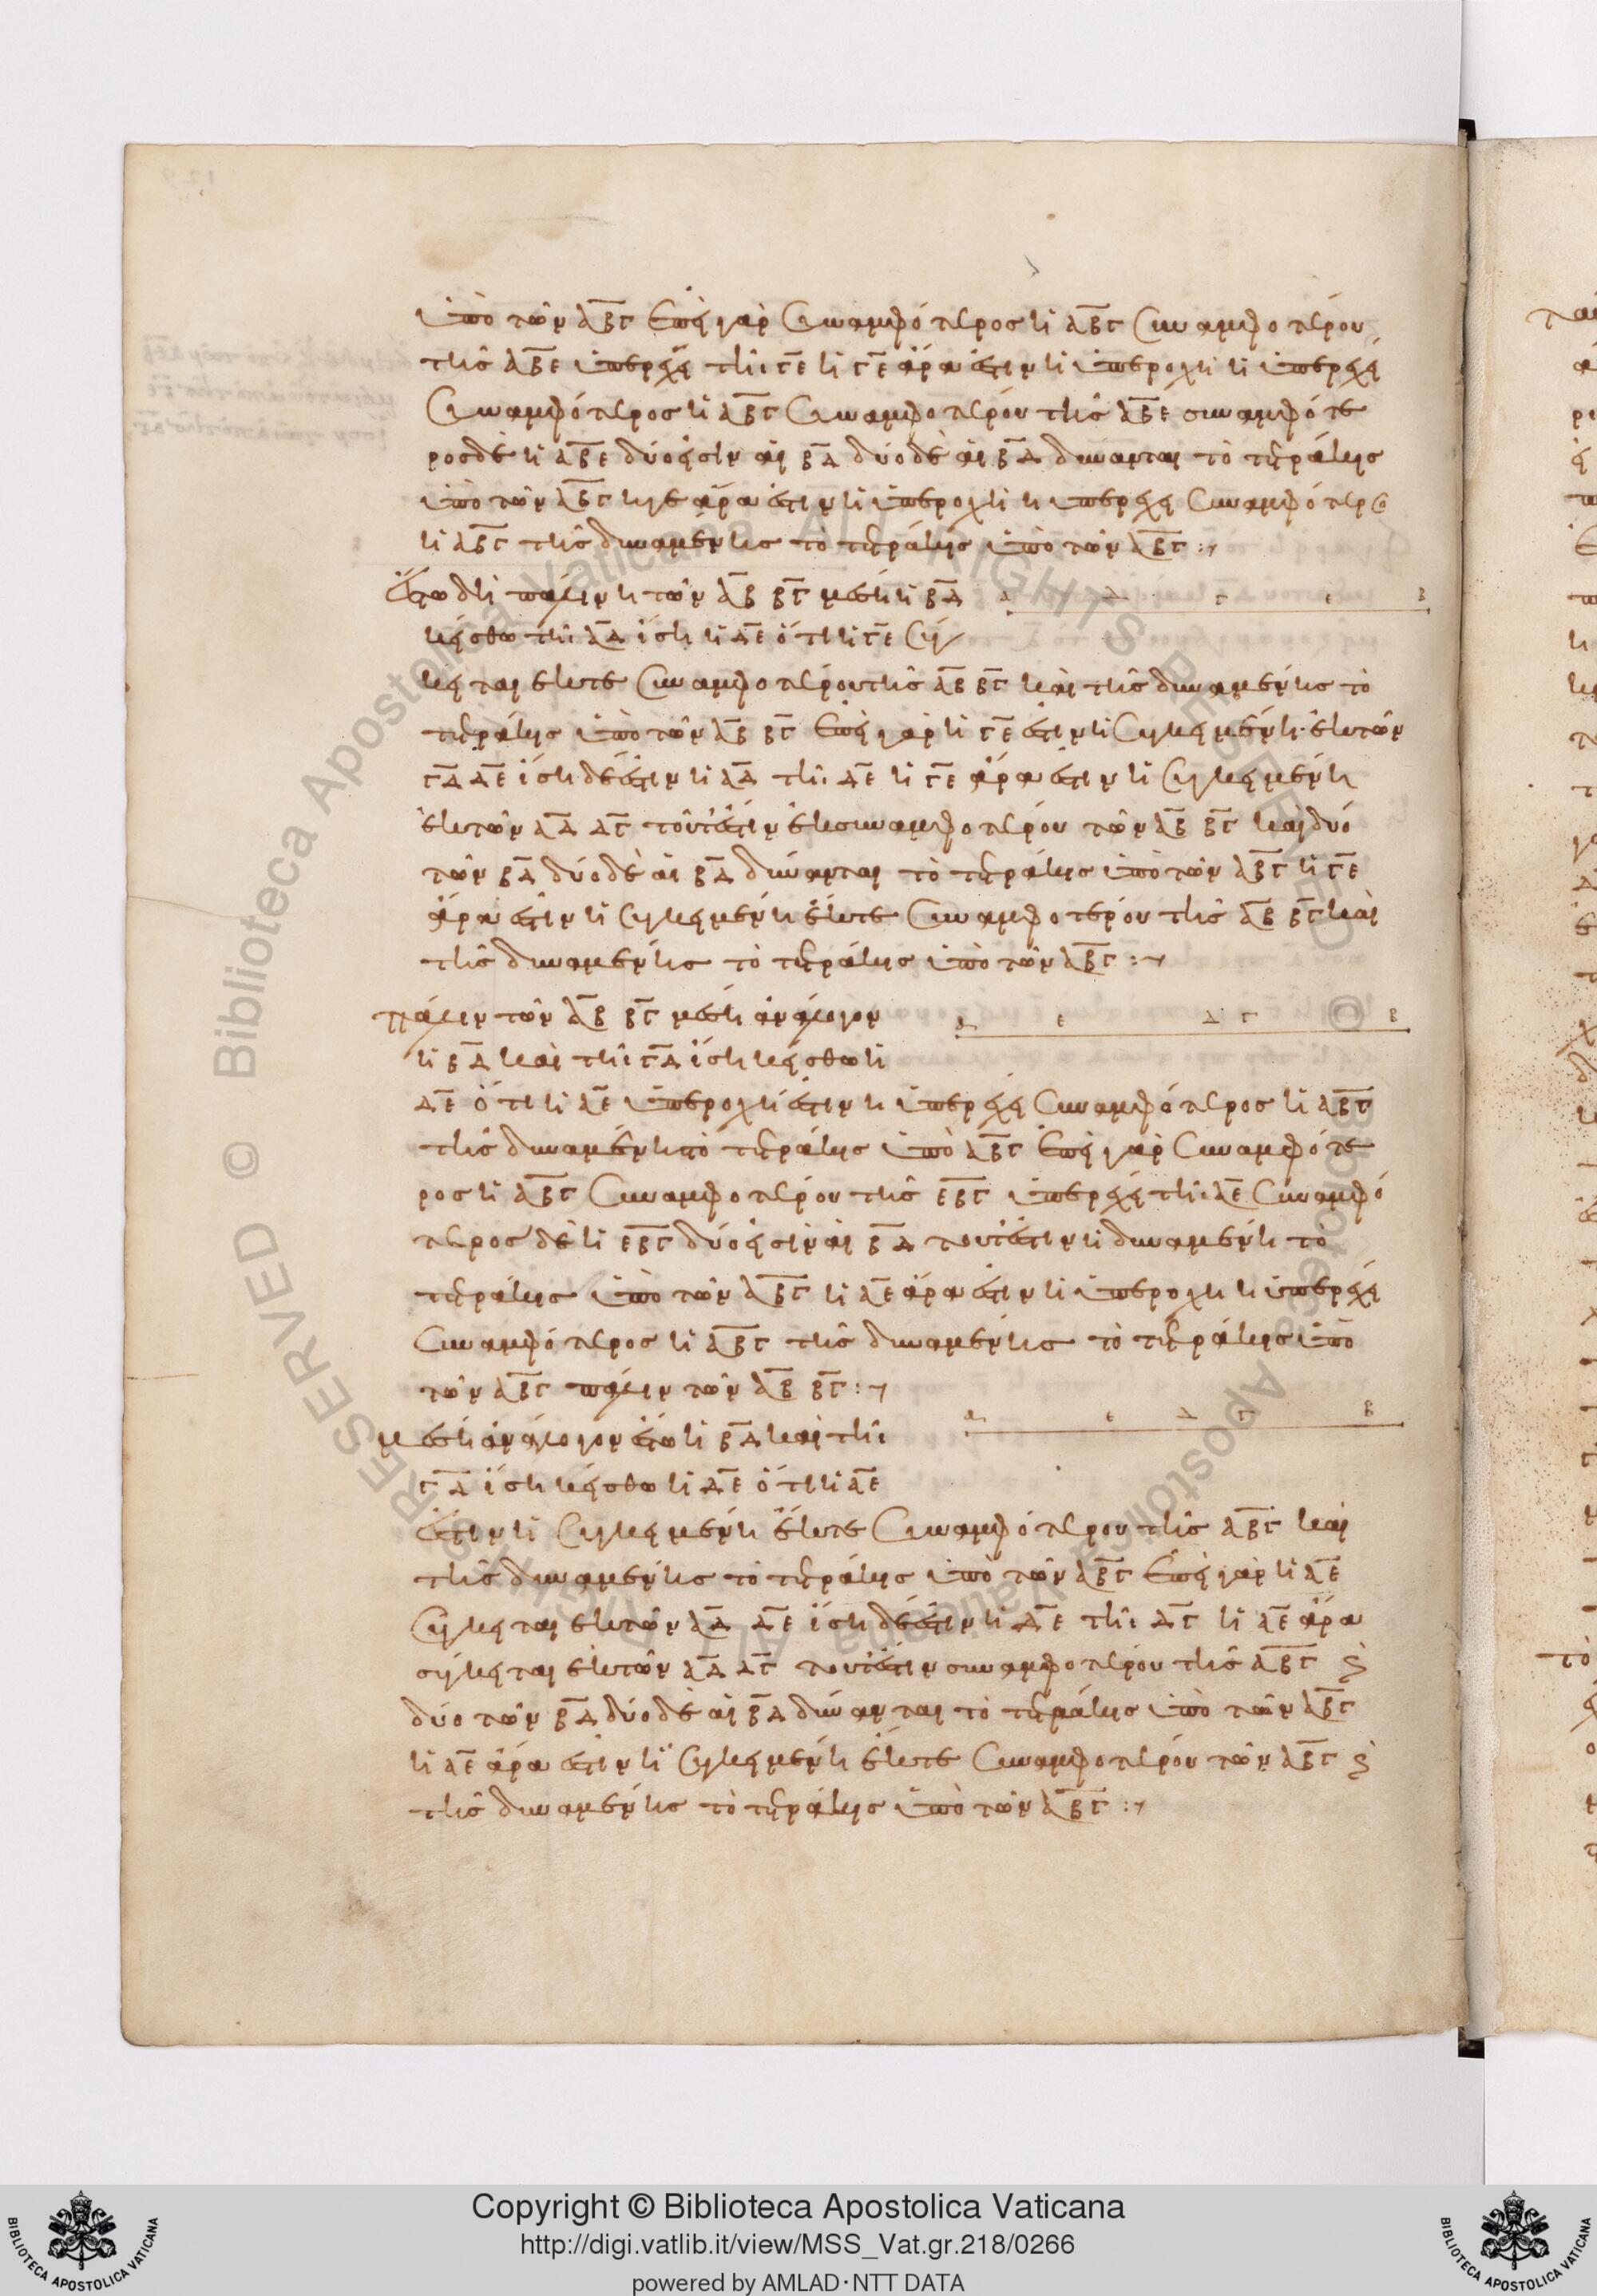 ὑπὸ τῶν ΑΒΓ ἐπεὶ γὰρ συναμφότερος ἡ ΑΒΓ συναμφοτέρου
τῆς ΑΒΕ ὑπερέχει τῆι ΓΕ ἡ ΓΕ ἄρα ἐστὶν ἡ ὑπεροχὴ ἧ ὑπερέχει
συναμφότερος ἡ ΑΒΓ συναμφοτέρου τῆς ΑΒΕ συναμφότε
ρος δὲ ἡ ΑΒΕ δύο εἰσὶν αἱ ΒΔ δύο δὲ αἱ ΒΔ δύνανται τὸ τετράκις
ὑπὸ τῶν ΑΒΓ ἡ ΓΕ ἄρα ἐστὶν ἡ ὑπεροχὴ ἧ ὑπερέχει συναμφότερος
ἡ ΑΒΓ τῆς δυναμένης τὸ τετράκις ὑπὸ τῶν ΑΒΓ :~
ἔστω δὴ πάλιν ἡ τῶν ΑΒ ΒΓ μέση ἡ ΒΔ Α Δ Γ Ε Β
κείσθω τῆι ΑΔ ἴση ἡ ΔΕ ὅτι ἡ ΓΕ σύγ
κειται ἔκ τε συναμφοτέρου τῆς ΑΒ ΒΓ καὶ τῆς δυναμένης τὸ
τετράκις ὑπὸ τῶν ΑΒ ΒΓ ἐπεὶ γὰρ ἡ ΓΕ ἐστιν ἡ συγκειμένη ἐκ τῶν
ΓΔ ΔΕ ἴση δέ ἐστιν ἡ ΑΔ τῆι ΔΕ ἡ ΓΕ ἄρα ἐστὶν ἡ συγκειμένη
ἐκ τῶν ΑΔ ΔΓ τουτέστιν ἐκ συναμφοτέρου τῶν ΑΒ ΒΓ καὶ δύο
τῶν ΒΔ δύο δὲ αἱ ΒΔ δύνανται τὸ τετράκις ὑπὸ τῶν ΑΒΓ ἡ ΓΕ
ἄρα ἐστὶν ἡ συγκειμένη ἔκ τε συναμφοτέρου τῆς ΑΒ ΒΓ καὶ
τῆς δυναμένης τὸ τετράκις ὑπὸ τῶν ΑΒΓ :~
πάλιν τῶν ΑΒ ΒΓ μέση ἀνάλογον Α Ε Δ Γ Β
ἡ ΒΔ καὶ τῆι ΓΔ ἴση κείσθω ἡ
ΔΕ ὅτι ἡ ΑΕ ὑπεροχή ἐστιν ἧ ὑπερέχει συναμφότερος ἡ ΑΒΓ
τῆς δυναμένης τὸ τετράκις ὑπὸ ΑΒΓ ἐπεὶ γὰρ συναμφότε
ρος ἡ ΑΒΓ συναμφοτέρου τῆς ΕΒΓ ὑπερέχει τῆι ΑΕ συναμφό
τερος δὲ ἡ ΕΒΓ δύο εἰσὶν αἱ ΒΔ τουτέστιν ἡ δυναμένη τὸ
τετράκις ὑπὸ τῶν ΑΒΓ ἡ ΑΕ ἄρα ἐστὶν ἡ ὑπεροχὴ ἧ ὑπερέχει
συναμφότερος ἡ ΑΒΓ τῆς δυναμένης τὸ τετράκις ὑπὸ
τῶν ΑΒΓ πάλιν τῶν ΑΒ ΒΓ :~
μέση ἀνάλογον ἔστω ἡ ΒΔ καὶ τῆι Α Ε Δ Γ Β
ΓΔ ἴση κείσθω ἡ ΔΕ ὅτι ἡ ΑΕ
ἐστιν ἡ συγκειμένη ἔκ τε συναμφότερου τῆς ΑΒΓ καὶ
τῆς δυναμένης τὸ τετράκις ὑπὸ τῶν ΑΒΓ ἐπεὶ γὰρ ἡ ΑΕ
σύγκειται ἐκ τῶν ΑΔ ΔΕ ἴση δέ ἐστιν ἡ ΔΕ τῆι ΔΓ ἡ ΑΕ ἄρα
σύγκειται ἐκ τῶν ΑΔ ΔΓ τουτέστιν συναμφοτέρου τῆς ΑΒΓ ϗ
δύο τῶν ΒΔ δύο δὲ αἱ ΒΔ δύνανται τὸ τετράκις ὑπὸ τῶν ΑΒΓ
ἡ ΑΕ ἄρα ἐστιν ἡ συγκειμένη ἔκ τε συναμφοτέρου τῶν ΑΒΓ ϗ
τῆς δυναμένης τὸ τετράκις ὑπὸ τῶν ΑΒΓ :~
Copyright © Biblioteca Apostolica Vaticana
http://digi.vatlib.it/view/MSS_Vat.gr.218/0266
powered by AMLAD·NTT DATA
BIBLIOTECA APOSTOLICA VATICANA
BIBLIOTECA APOSTOLICA VATICANA